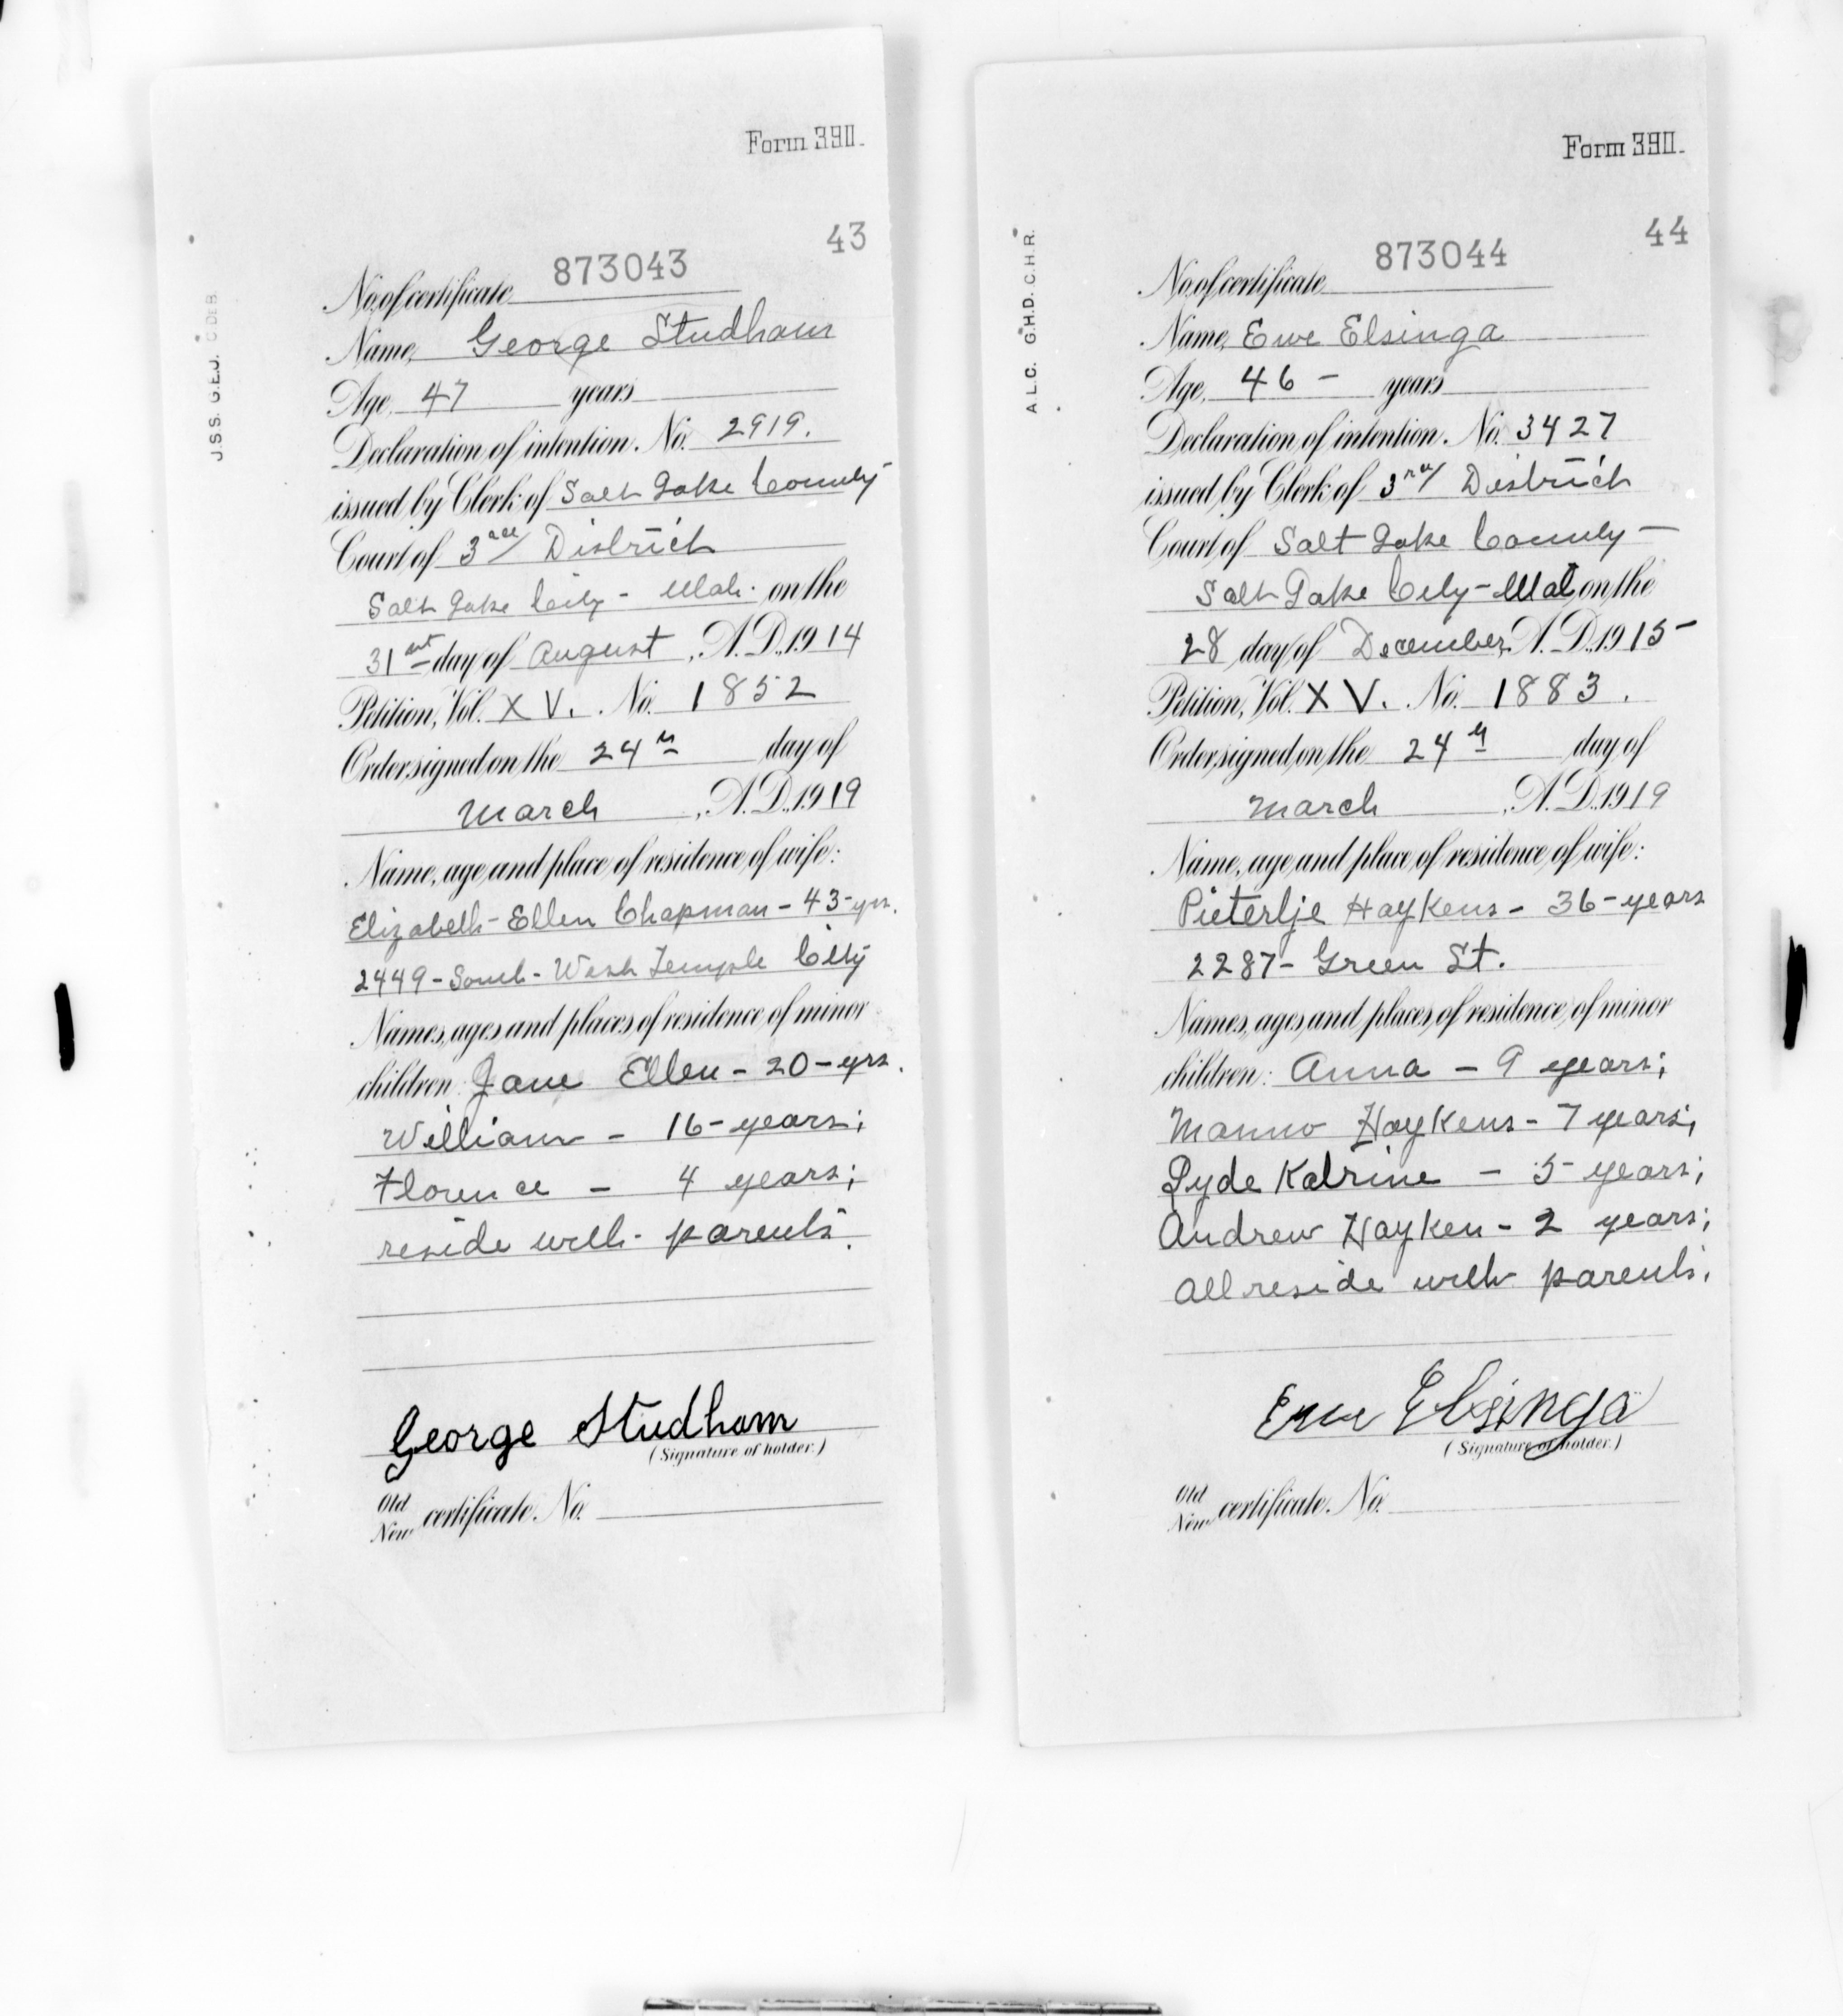 Form 390.
43
J.S.S. G.E.J.
No. of certificate 873043
Name, George Studham
Age, 47 years
Declaration of intention. No. 2919.
issued by Clerk of Salt Lake County
Court of 3rd District
Salt Lake City - Utah. on the
31st day of August, A.D. 1914
Petition, Vol. XV. No. 1852
Order signed on the 24th day of
March, A.D. 1919
Name, age and place of residence of wife:
Elizabeth Ellen Chapman - 43-yrs.
2449 - South - West Temple City
Names, ages and places of residence of minor
children: Jane Ellen - 20-yrs.
William - 16-years;
Florence - 4 years;
reside with parents.
George Studham
(Signature of holder.)
Old
New certificate. No.
Form 390.
44
A L.C. G.H.D. C.H.R.
No. of certificate 873044
Name, Ewe Elsinga
Age, 46 - years
Declaration of intention. No. 3427
issued by Clerk of 3rd District
Court of Salt Lake County -
Salt Lake City - Utah on the
28 day of December, A.D. 1915
Petition, Vol. XV. No. 1883.
Order signed on the 24th day of
March, A.D. 1919
Name, age and place of residence of wife:
Pietertje Haykens - 36-years
2287 - Green St.
Names, ages and places of residence of minor
children: Anna - 9 years;
Manno Haykens - 7 years;
Lyde Katrine - 5 years;
Andrew Hayken - 2 years;
All reside with parents.
Ewe Elsinga
(Signature of holder.)
Old
New certificate. No.